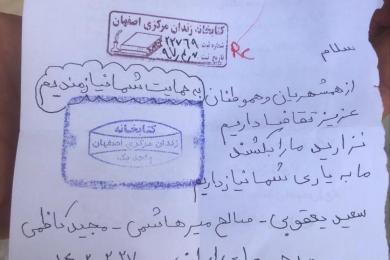 کتابخانه زندان مرکزی اصفهان
شماره ثبت ۲۲۷۶۹
تاریخ ثبت
RC
سلام
از همشهریان و هموطنان
به حمایت شما نیازمندیم
عزیز تقاضا داریم
نزارید ما را بکشند
ما به یاری شما نیاز داریم
کتابخانه
زندان مرکزی اصفهان
واحد یک
سعید یعقوبی - صالح میرهاشمی - مجید کاظمی